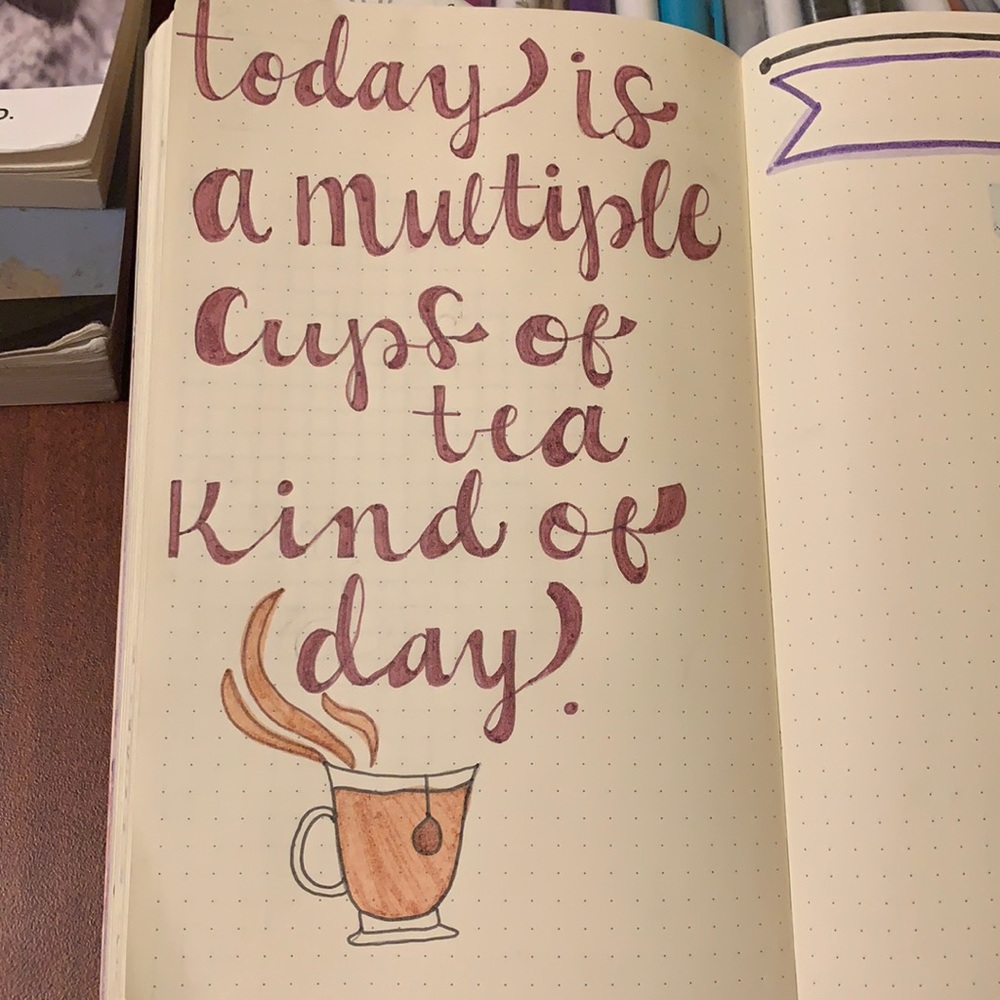 today is
a multiple
cups of
tea
kind of
day.